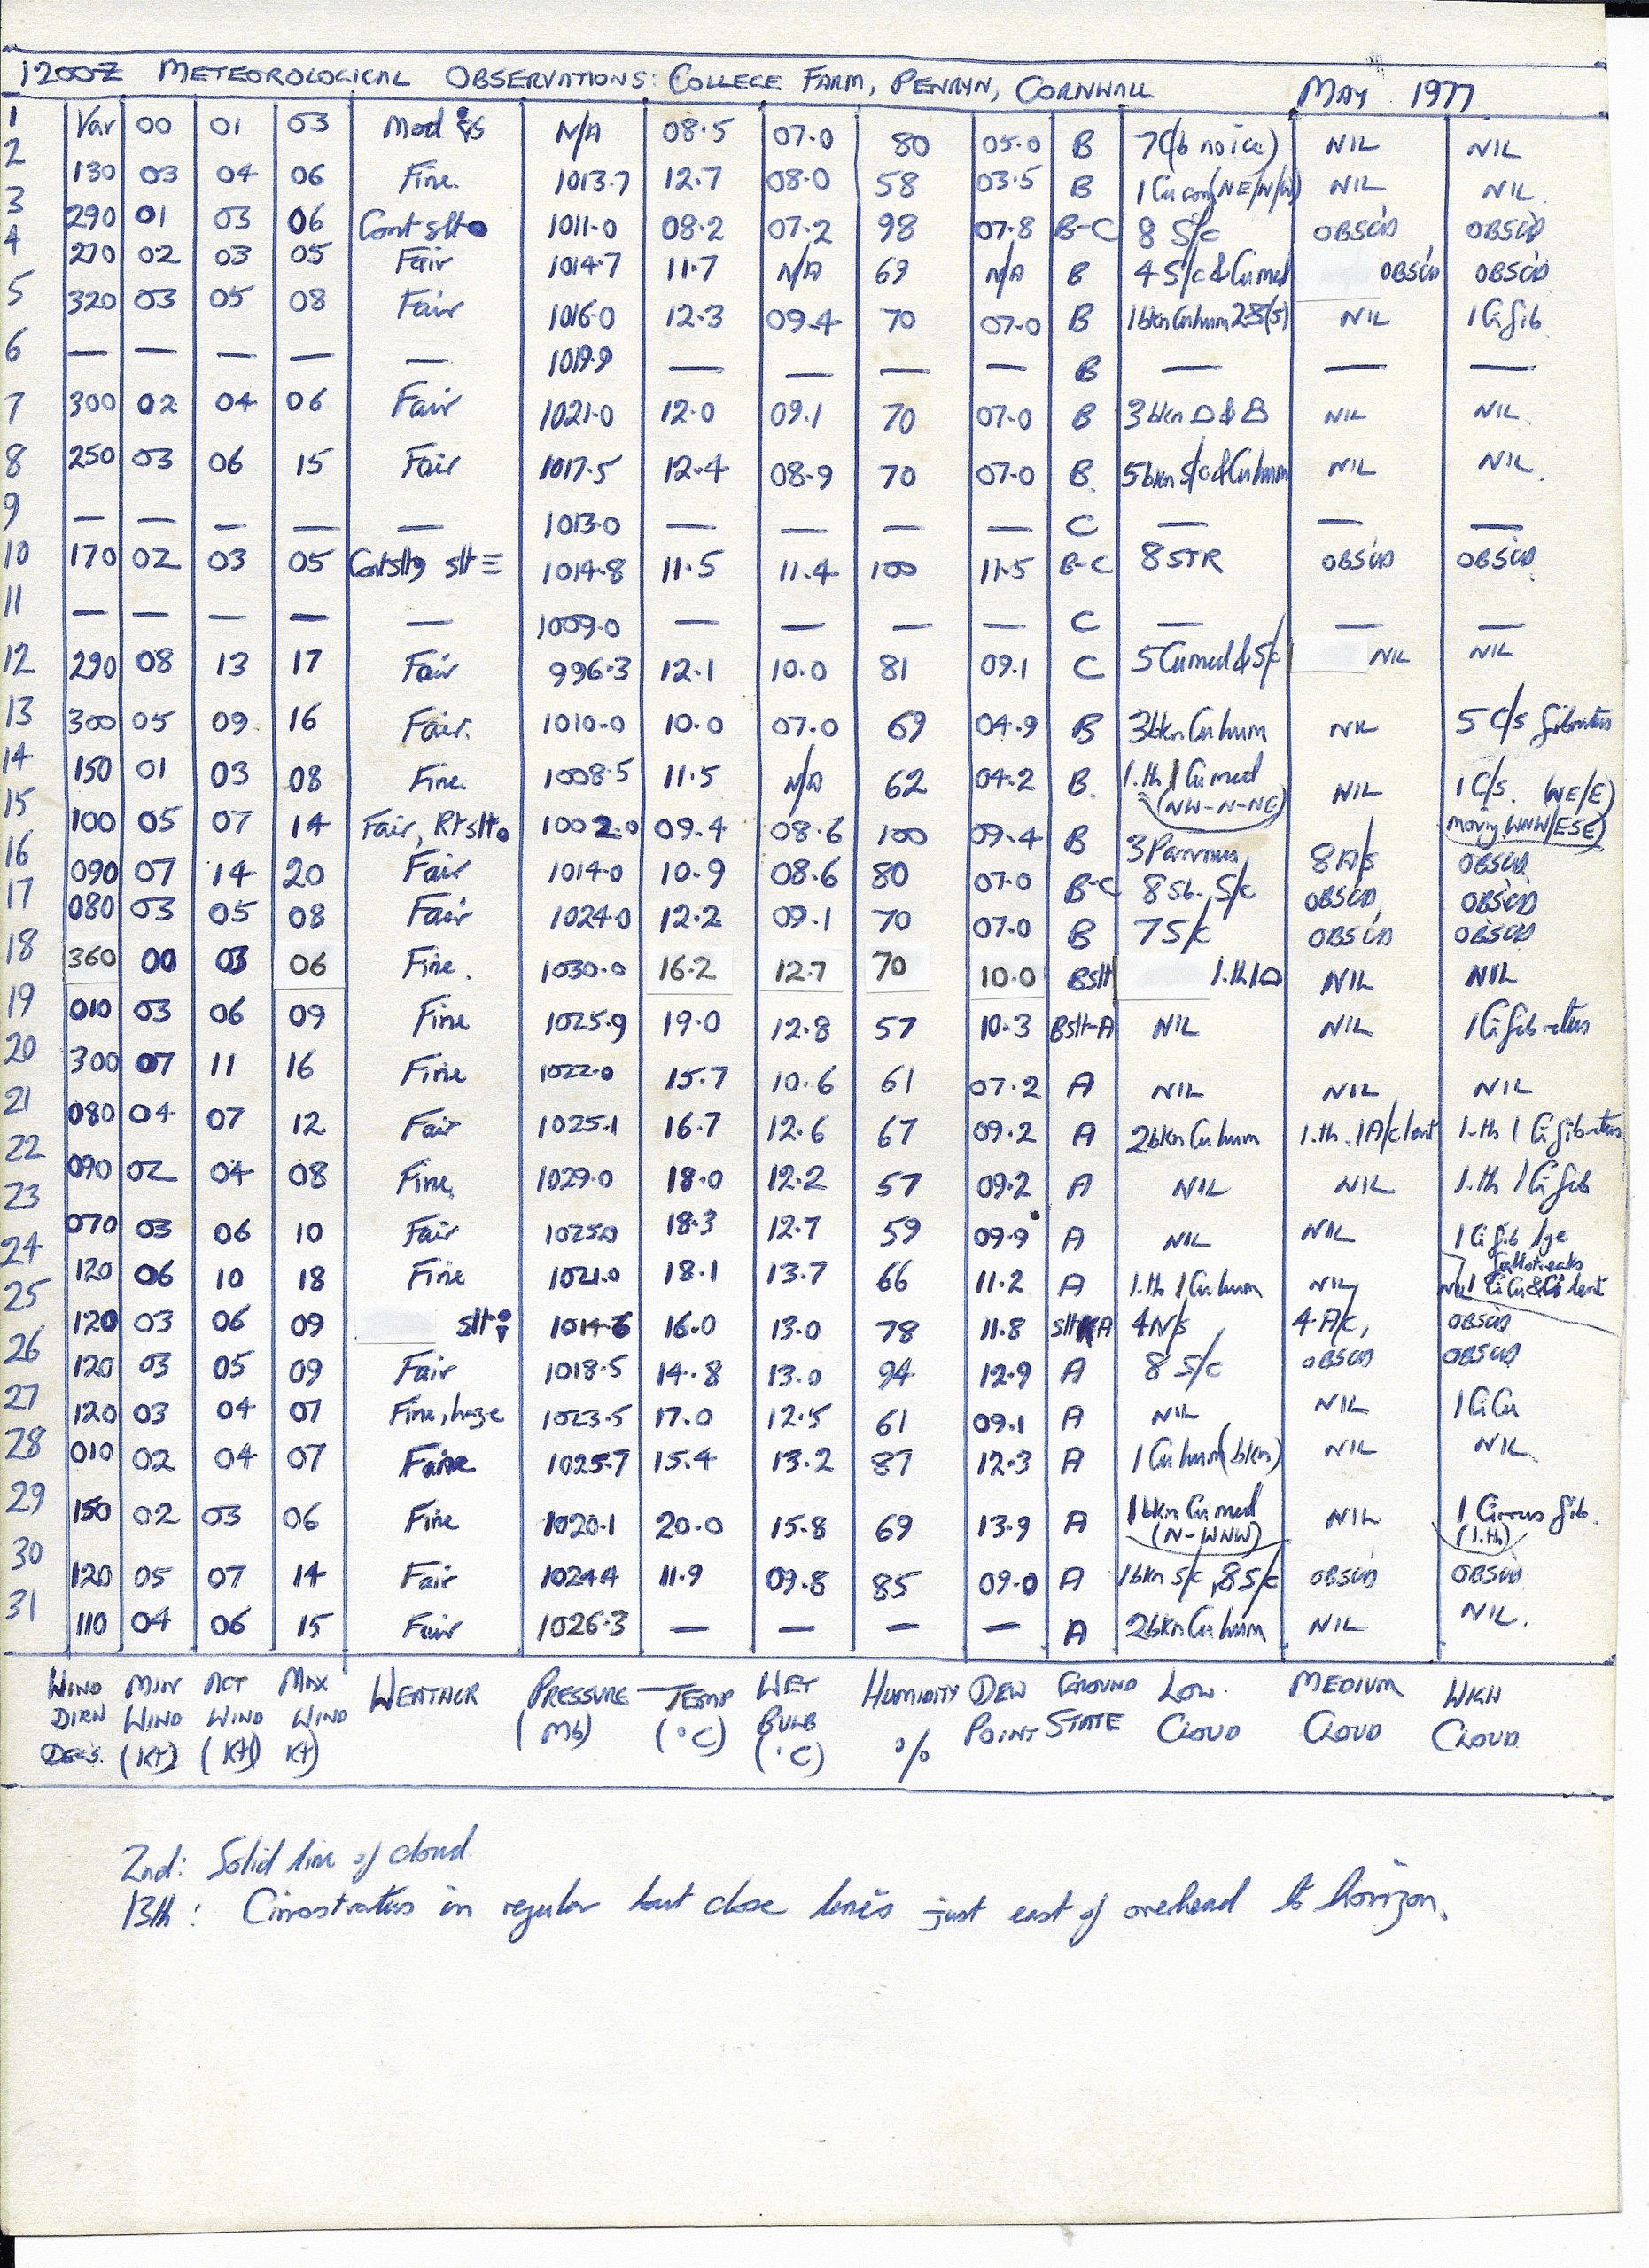 1200Z METEOROLOGICAL OBSERVATIONS: COLLEGE FARM, PENRYN, CORNWALL MAY 1977
1 Var 00 01 03 Mod N/A 08.5 07.0 80 05.0 B 7Cb no ice) NIL NIL
2 130 03 04 06 Fine. 1013.7 12.7 08.0 58 03.5 B 1 Cu con(NE/N/W) NIL NIL.
3 290 01 03 06 Cont slt● 1011.0 08.2 07.2 98 07.8 B-C 8 S/c OBSC'D OBSC'D
4 270 02 03 05 Fair 1014.7 11.7 N/A 69 N/A B 4 S/c & Cu med OBSC'D OBSC'D
5 320 03 05 08 Fair 1016.0 12.3 09.4 70 07.0 B 1bkn Cu hum 2-8(S) NIL 1 Ci fib
6 — — — — — 1019.9 — — — — B — — —
7 300 02 04 06 Fair 1021.0 12.0 09.1 70 07.0 B 3 bkn NIL NIL.
8 250 03 06 15 Fair 1017.5 12.4 08.9 70 07.0 B. 5 bkn S/c & Cu hum NIL NIL.
9 — — — — — 1013.0 — — — — C — — —
10 170 02 03 05 slt ≡ 1014.8 11.5 11.4 100 11.5 B-C 8 STR OBSC'D OBSC'D
11 — — — — — 1009.0 — — — — C — — —
12 290 08 13 17 Fair 996.3 12.1 10.0 81 09.1 C 5 Cu med & S/c NIL NIL
13 300 05 09 16 Fair. 1010.0 10.0 07.0 69 04.9 B 3bkn Cu hum NIL 5 C/s fibratus
14 150 01 03 08 Fine. 1008.5 11.5 N/A 62 04.2 B. 1.th 1 Cu med NIL 1 C/s. (NE/E)
(NW-N-NE) moving WNW/ESE)
15 100 05 07 14 Fair, 1002.0 09.4 08.6 100 09.4 B 3 Pannus, 8 A/s OBSC'D
16 090 07 14 20 Fair 1014.0 10.9 08.6 80 07.0 B-C 8 Sb. S/c OBSC'D, OBSC'D
17 080 03 05 08 Fair 1024.0 12.2 09.1 70 07.0 B 7 S/c OBSC'D OBSC'D
18 360 00 03 06 Fine. 1030.0 16.2 12.7 70 10.0 Bslt 1.th1 NIL NIL
19 010 03 06 09 Fine 1025.9 19.0 12.8 57 10.3 Bslt-A NIL NIL 1 Ci fibratus
20 300 07 11 16 Fine 1022.0 15.7 10.6 61 07.2 A NIL NIL NIL
21 080 04 07 12 Fair 1025.1 16.7 12.6 67 09.2 A 2bkn Cu hum 1.th.1A/c lent 1.th 1 Ci fibratus
22 090 02 04 08 Fine. 1029.0 18.0 12.2 57 09.2 A NIL NIL 1.th 1 Ci fib
23 070 03 06 10 Fair 1025.0 18.3 12.7 59 09.9 A NIL NIL 1 Ci fib lge
fallstreaks
24 120 06 10 18 Fine 1021.0 18.1 13.7 66 11.2 A 1.th 1 Cu hum NIL 1 CiCu & Ci lent
25 120 03 06 09 slt 1014.6 16.0 13.0 78 11.8 A 4N/s 4 A/c, OBSC'D
26 120 03 05 09 Fair 1018.5 14.8 13.0 94 12.9 A 8 S/c OBSC'D OBSC'D
27 120 03 04 07 Fine, haze 1023.5 17.0 12.5 61 09.1 A NIL NIL 1 CiCu
28 010 02 04 07 1025.7 15.4 13.2 87 12.3 A 1 Cu hum(bkn) NIL NIL.
29 150 02 03 06 Fine 1020.1 20.0 15.8 69 13.9 A 1 bkn Cu med NIL 1 Cirrus fib.
(N-WNW) (1.th)
30 120 05 07 14 Fair 1024.4 11.9 09.8 85 09.0 A 1bkn S/c, 8 S/c OBSC'D OBSC'D
31 110 04 06 15 Fair 1026.3 — — — — A 2bkn Cu hum NIL NIL.
WIND MIN ACT MAX WEATHER PRESSURE TEMP WET HUMIDITY DEW GROUND LOW MEDIUM HIGH
DIRN WIND WIND WIND (Mb) (°C) BULB % POINT STATE CLOUD CLOUD CLOUD
DEGS. (Kt) (Kt) Kt) (°C)
2nd: Solid line of cloud
13th: Cirrostratus in regular but close lines just east of overhead to horizon.